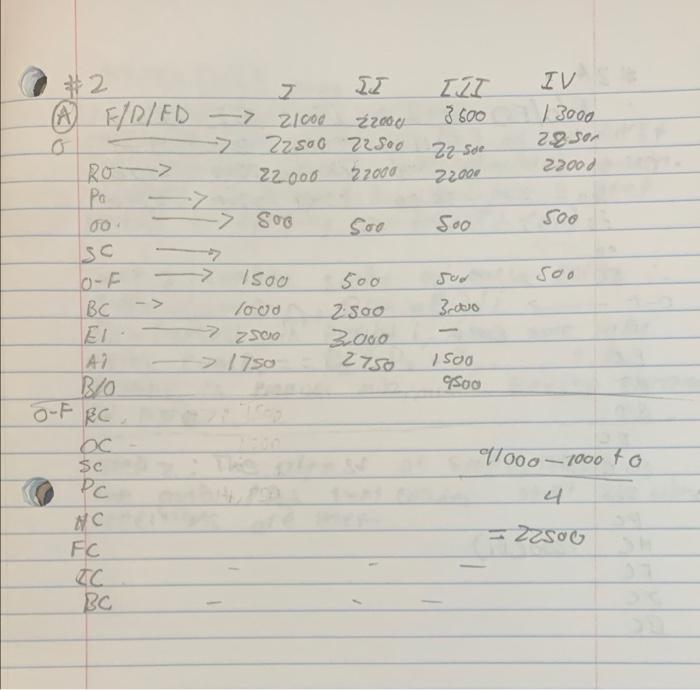 #2 I II III IV
A F/D/FD -> 21000 22000 3600 13000
σ -> 22500 22500 22500 22500
RO -> 22000 22000 22000 22000
Po ->
OO. -> 500 500 500 500
SC ->
O-F -> 1500 500 500 500
BC -> 1000 2500 3000
EI -> 2500 3000 -
AI -> 1750 2750 1500
B/O 9500
O-F RC.
OC -
SC 91000-1000+0
PC 4
HC = 22500
FC
IC - - -
BC - - -